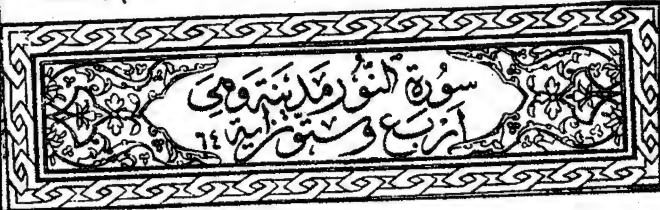 سورة النور مدنية وهي
اربع وستون اية ٦٤